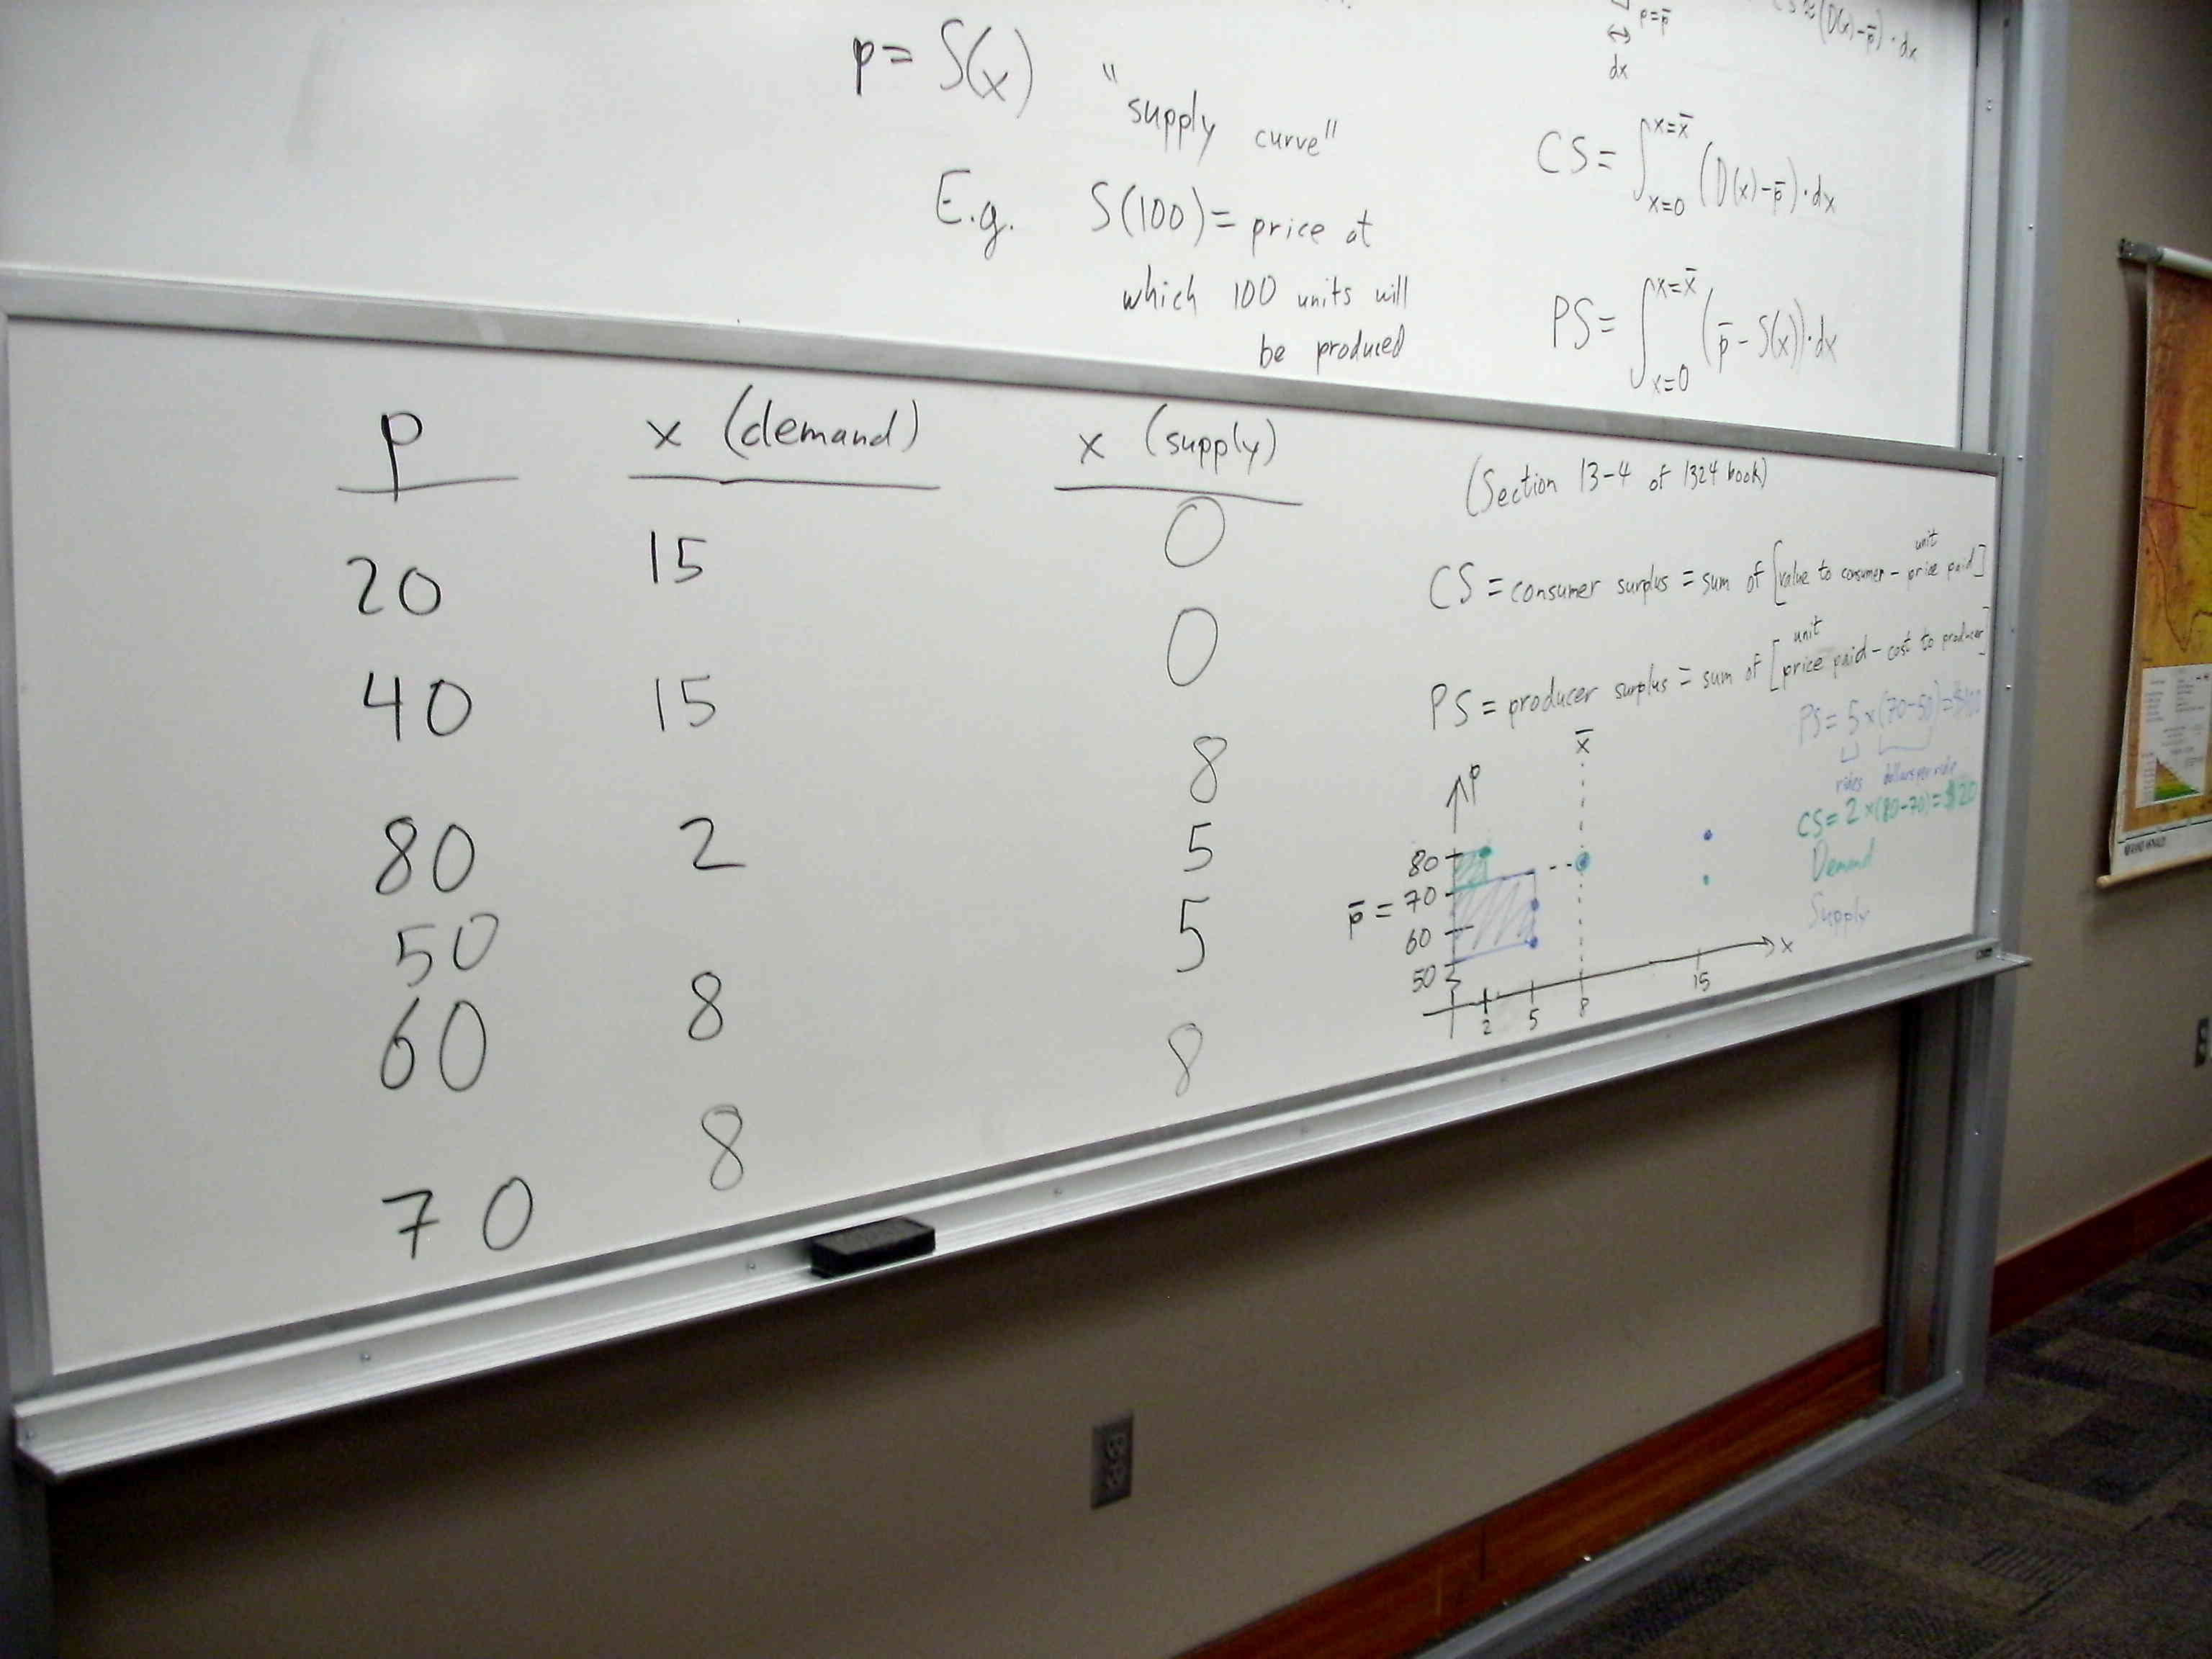 p = S(x) "supply curve"
E.g. S(100) = price at
which 100 units will
be produced
p=p̄
dx
(D(x)-p̄)·dx
CS = ∫ x=0 x=x̄ (D(x)-p̄)·dx
PS = ∫ x=0 x=x̄ (p̄ - S(x))·dx
p x (demand) x (supply)
20 15 0
40 15 0
80 2 8
50 5
60 8 5
70 8 8
(Section 13-4 of 1324 book)
CS = consumer surplus = sum of [value to consumer - unit price paid]
PS = producer surplus = sum of [unit price paid - cost to producer]
PS = 5 x (70-50) = $100
rides dollars per ride
CS = 2 x (80-70) = $20
Demand
Supply
x̄
p
80
p̄ = 70
60
50
2 5 8 15 x